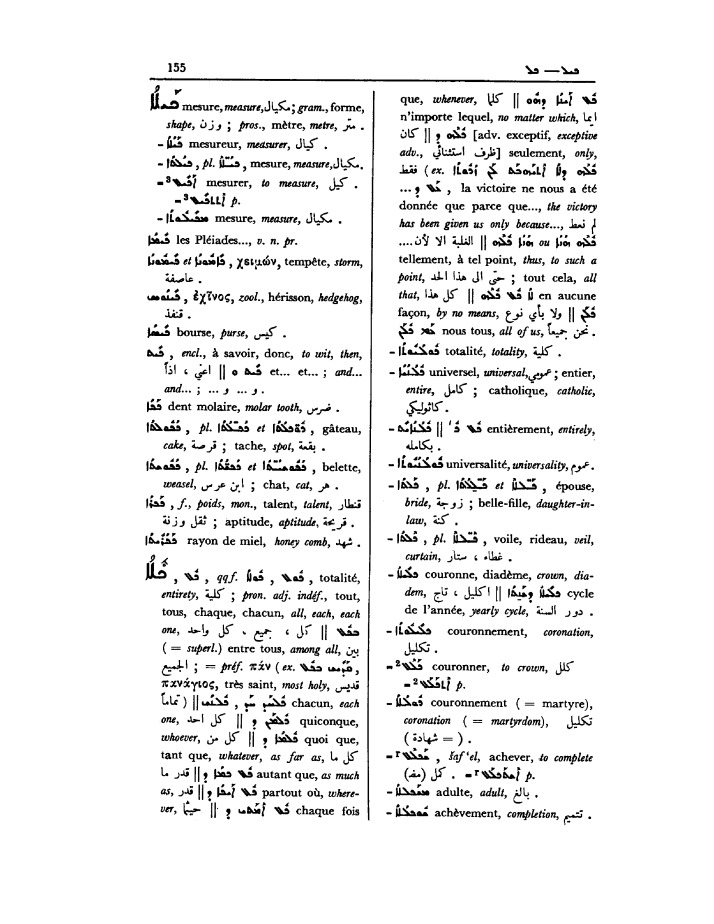 155 ܟܝܠ — ܟܠ
ܟܝܠܐ mesure, measure, مكيال ; gram., forme,
shape, وزن ; pros., mètre, metre, متر .
- ܟܝܠܐ mesureur, measurer, كيال .
- ܟܝܠܬܐ , pl. ܟܝܠܐ , mesure, measure, مكيال.
-³ ܐܟܝܠ mesurer, to measure, كيل .
-³ ܐܬܬܟܝܠ p.
- mesure, measure, مكيال .
ܟܝܡܐ les Pléiades..., v. n. pr.
ܟܝܡܘܢܐ et , χειμών, tempête, storm,
عاصفة .
, ἐχῖνος, zool., hérisson, hedgehog,
قنفذ .
ܟܝܣܐ bourse, purse, كيس .
ܟܝܬ , encl., à savoir, donc, to wit, then,
اعني ، اذاً || ܟܝܬ ܘ et... et... ; and...
and... ; ... و ... و .
ܟܟܐ dent molaire, molar tooth, ضرس .
, pl. et , gâteau,
cake, قرصة ; tache, spot, بقعة .
, pl. et , belette,
weasel, ابن عرس ; chat, cat, هر .
ܟܟܪܐ , f., poids, mon., talent, talent, قنطار
ثقل وزنة ; aptitude, aptitude, قريحة .
ܟܟܪܝܬܐ rayon de miel, honey comb, شهد .
ܟܠܐ , ܟܠ , ܟܘܠ , qqf. ܟܘܠܐ , totalité,
entirety, كلية ; pron. adj. indéf., tout,
tous, chaque, chacun, all, each, each
one, كل ، جميع ، كل واحد || ܒܟܠ
( = superl.) entre tous, among all, بين
الجميع ; = préf. πάν (ex. ܩܕܝܫ ܒܟܠ ,
πανάγιος, très saint, most holy, قديس
تماماً ) || ܟܠܚܕ , ܟܠ ܚܕ chacun, each
one, كل احد || ܟܠܡܢ ܕ quiconque,
whoever, كل من || ܟܠܡܐ ܕ quoi que,
tant que, whatever, as far as, كل ما
قدر ما || ܟܠ ܟܡܐ ܕ autant que, as much
as, قدر || ܟܠ ܐܝܟܐ ܕ partout où, where-
ver, حيثما || ܟܠ ܐܡܬܝ ܕ chaque fois
que, whenever, كلما || ܟܠ ܐܝܢܐ ܕܗܘ
n'importe lequel, no matter which, ايما
كان || ܟܠܗ ܕ [adv. exceptif, exceptive
adv., ظرف استثنائي] seulement, only,
فقط (ex.
... , la victoire ne nous a été
donnée que parce que..., the victory
has been given us only because..., لم نعط
الغلبة الا لأن.... || ܟܠܗ ܗܢܐ ou ܗܢܐ ܟܠܗ
tellement, à tel point, thus, to such a
point, حتى الى هذا الحد ; tout cela, all
that, كل هذا || ܠܐ ܟܠ ܟܠܗ en aucune
façon, by no means, ولا بأي نوع || ܟܠܢ
nous tous, all of us, نحن جميعاً.
- ܟܘܠܝܘܬܐ totalité, totality, كلية .
- ܟܠܢܝܐ universel, universal, عمومي ; entier,
entire, كامل ; catholique, catholic,
كاثوليكي .
- ܟܠܢܐܝܬ || entièrement, entirely,
بكامله .
- ܟܘܠܢܝܘܬܐ universalité, universality, عموم .
- ܟܠܬܐ , pl. ܟܠܐ et ܟܠܬܐ , épouse,
bride, زوجة ; belle-fille, daughter-in-
law, كنة .
- ܟܠܬܐ , pl. ܟܠܐ , voile, rideau, veil,
curtain, غطاء ، ستار .
- ܟܠܝܠܐ couronne, diadème, crown, dia-
dem, اكليل ، تاج || cycle
de l'année, yearly cycle, دور السنة .
- couronnement, coronation,
تكليل .
-² ܟܠܠ couronner, to crown, كلل
-² ܐܬܟܠܠ p.
- ܟܘܠܠܐ couronnement ( = martyre),
coronation ( = martyrdom), تكليل
( = شهادة ) .
-ʳ ܫܟܠܠ , šaf'el, achever, to complete
كل (مف) . -ʳ ܐܫܬܟܠܠ p.
- ܡܫܟܠܠܐ adulte, adult, بالغ .
- ܫܘܟܠܠܐ achèvement, completion, تتميم .